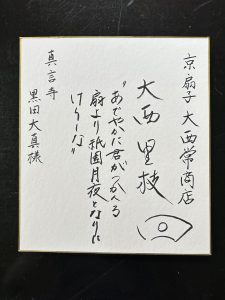 京扇子 大西常商店
大西里枝
"あでやかに君がつかへる
扇より祇園月夜となりに
けらしな"
真言寺
黒田大真様